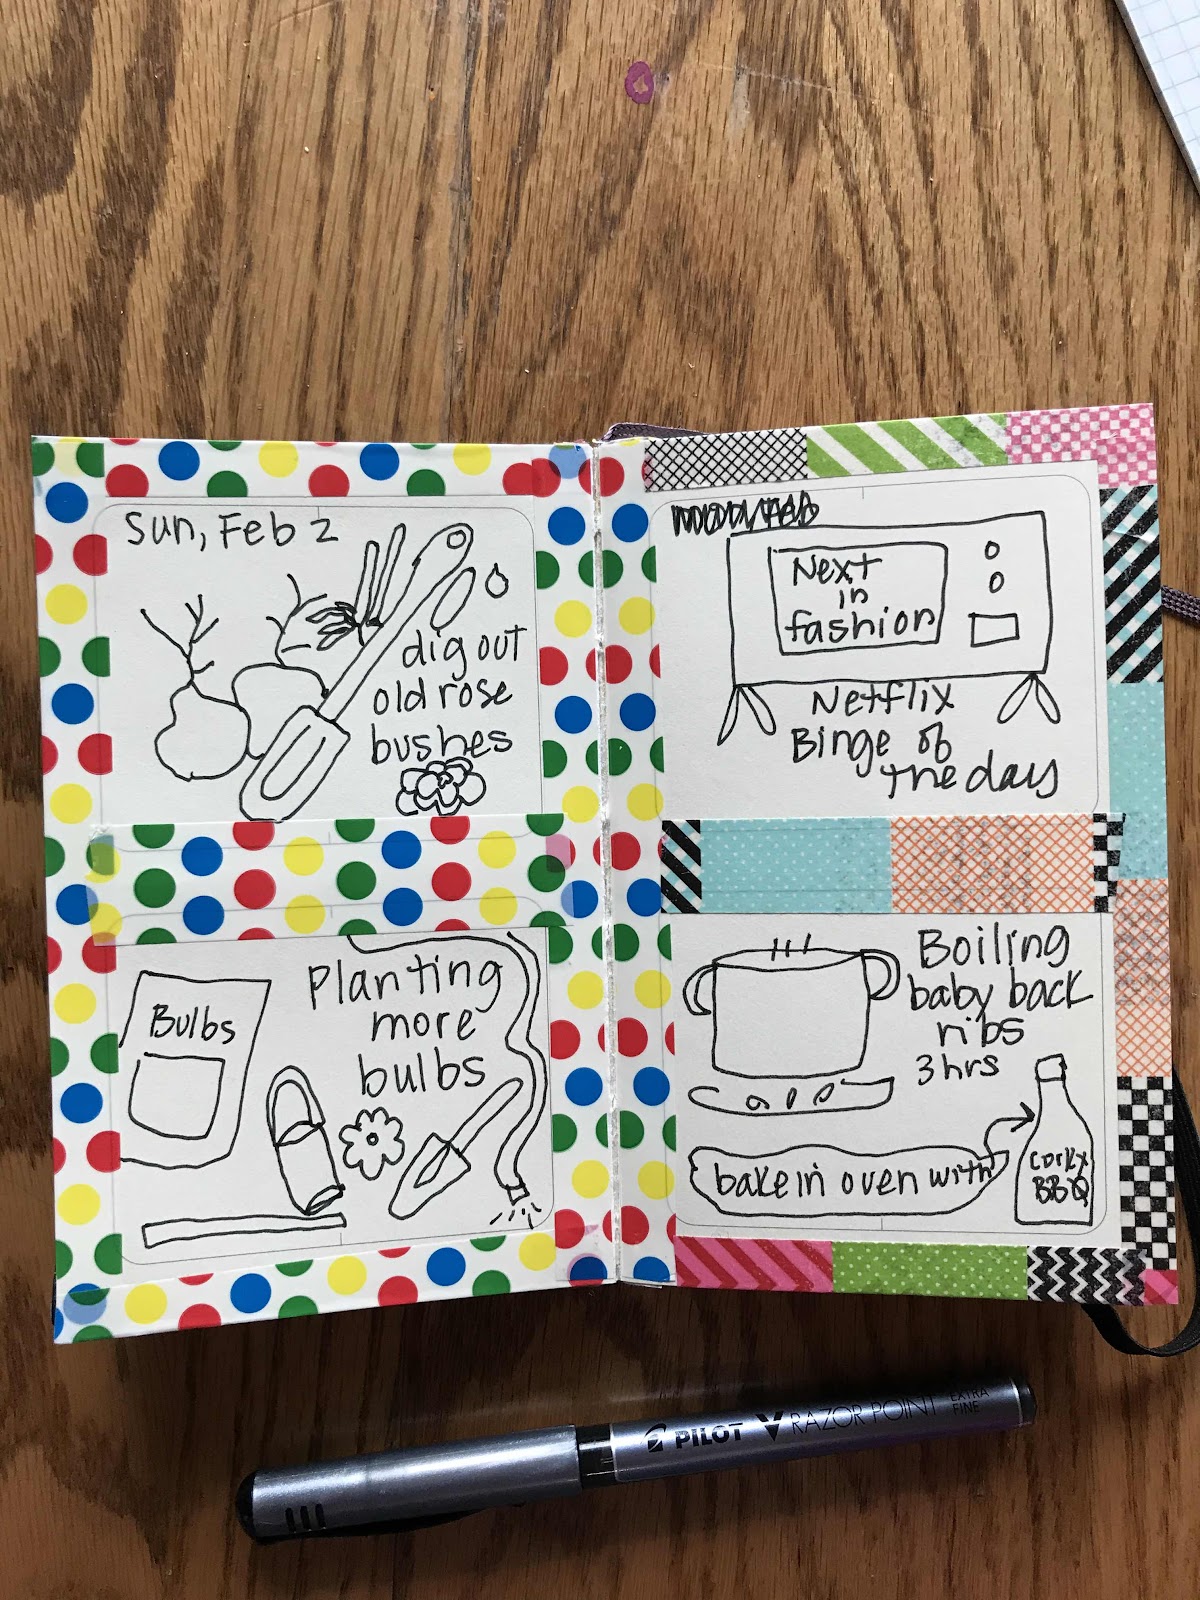 Sun, Feb 2
dig out
old rose
bushes
Bulbs
Planting
more
bulbs
Next
in
fashion
Netflix
Binge of
the day
Boiling
baby back
ribs
3 hrs
bake in oven with
BBQ
PILOT V RAZOR POINT EXTRA
FINE